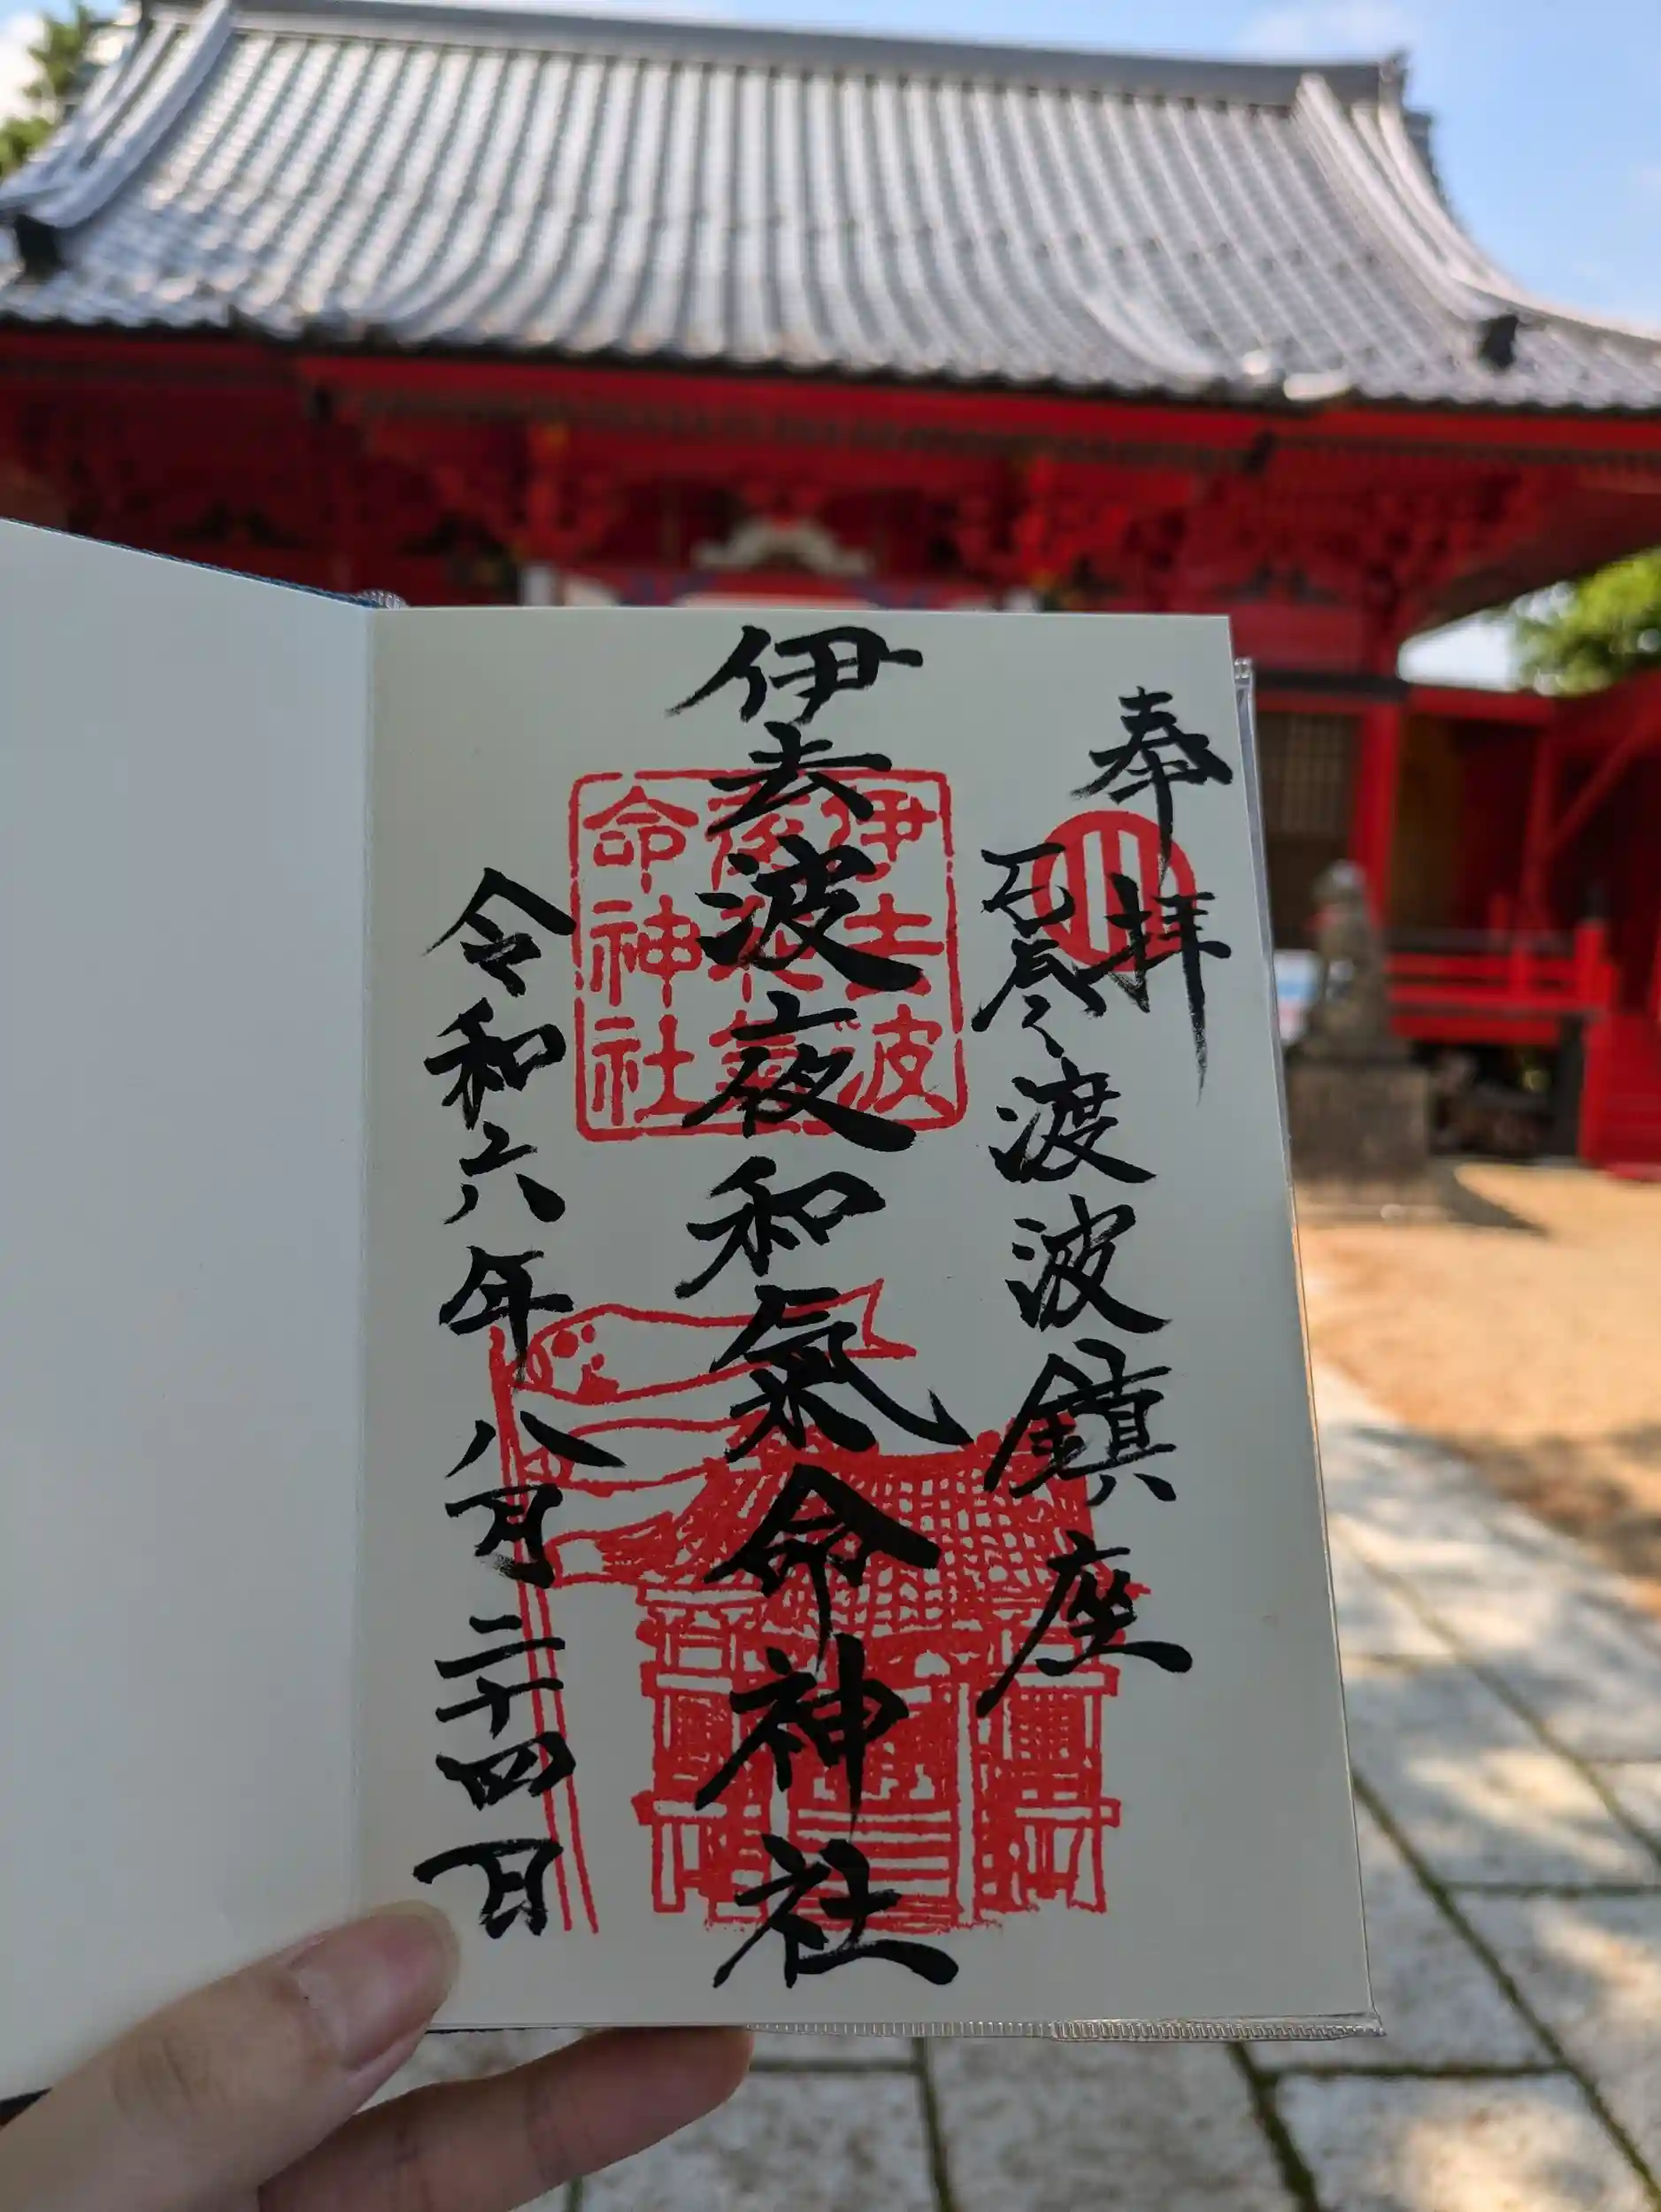 奉拝
石巻渡波鎮座
伊去波夜和氣命神社
令和六年八月二十四日
伊去波
夜和氣
命神社